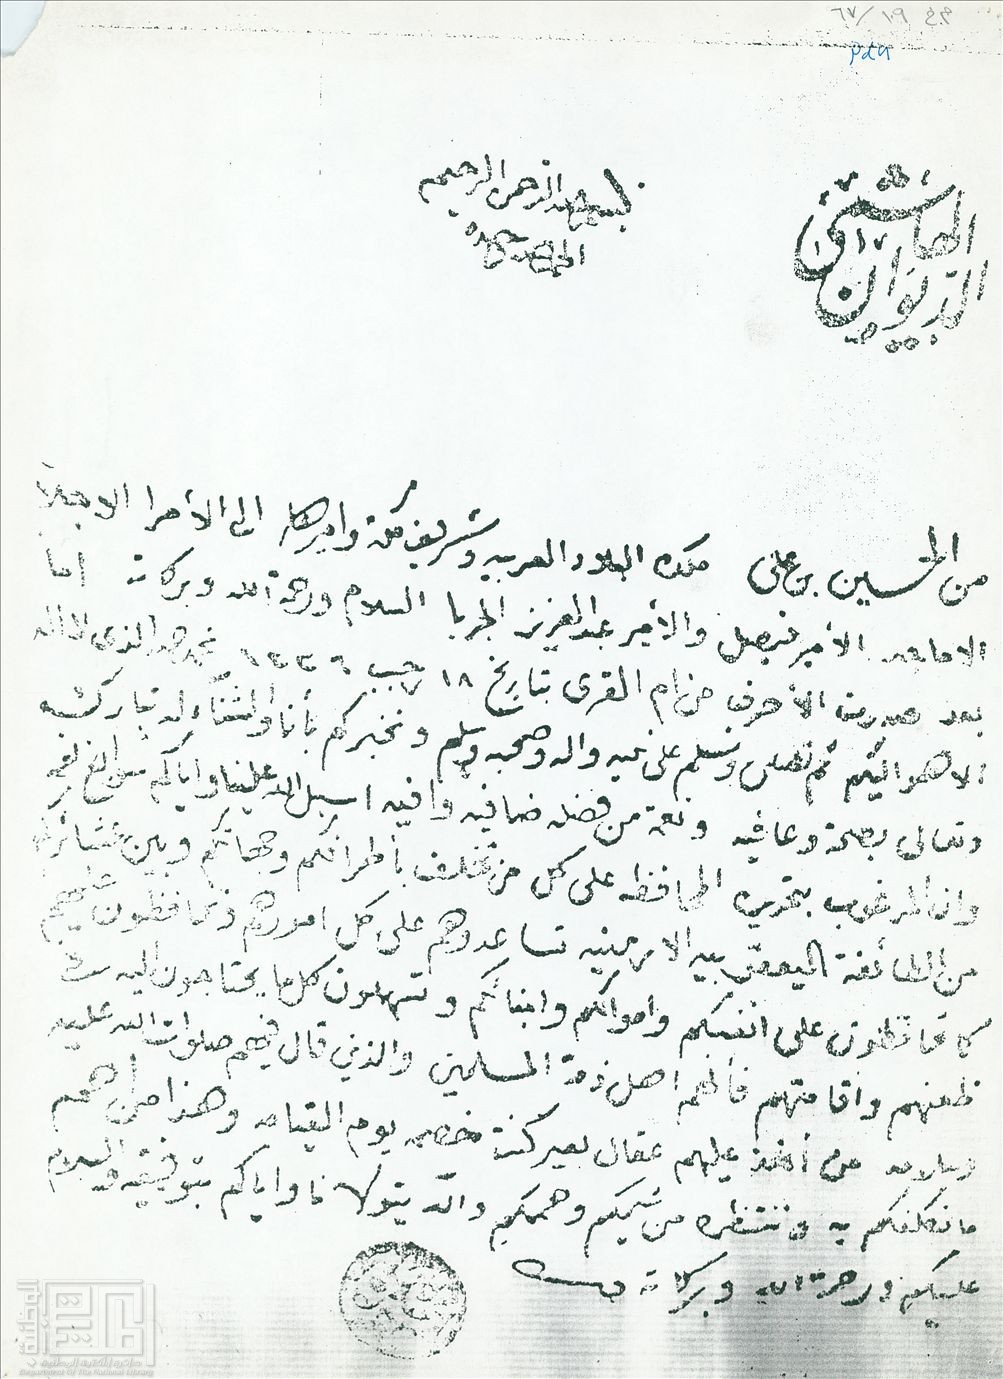 الديوان الهاشمي
بسم الله الرحمن الرحيم
الحمد لله وحده
من الحسين بن علي ملك البلاد العربية وشريف مكة واميرها الى الأمرا الاجلاء
الاماجد الأمير فيصل والأمير عبدالعزيز الجربا السلام ورحمة الله وبركاته اما
بعد صدرت الأحرف من ام القرى بتاريخ ١٨ رجب ١٣٣٦ نحمد الله الذي لا اله
الا هو اليكم ثم نصلي ونسلم على نبيه واله وصحبه وسلم ونخبركم بأنا والثناء له تبارك
وتعالى بصحة وعافيه ونعمة من فضله ضافيه وافيه اسبل الله علينا واياكم سوابغ نعمه
وان المرغوب بتحريره المحافظه على كل من تخلف بأطرافكم وجهاتكم وبين عشائركم
من الطائفة اليعقوبيه الارمنيه تساعدوهم على كل امورهم وتحافظون عليهم
كما تحافظون على انفسكم واموالكم وابنائكم وتسهلون كل ما يحتاجون اليه في
ظعنهم واقامتهم فأنهم اهل ذمة المسلمين والذين قال فيهم صلوات الله عليه
وسلامه من أخذ عليهم عقال بعير كنت خصمه يوم القيامه وهذا من أهم
ما نكلفكم به وننتظره من شيمكم وهممكم والله يتولانا واياكم بتوفيقه والسلام
عليكم ورحمة الله وبركاته